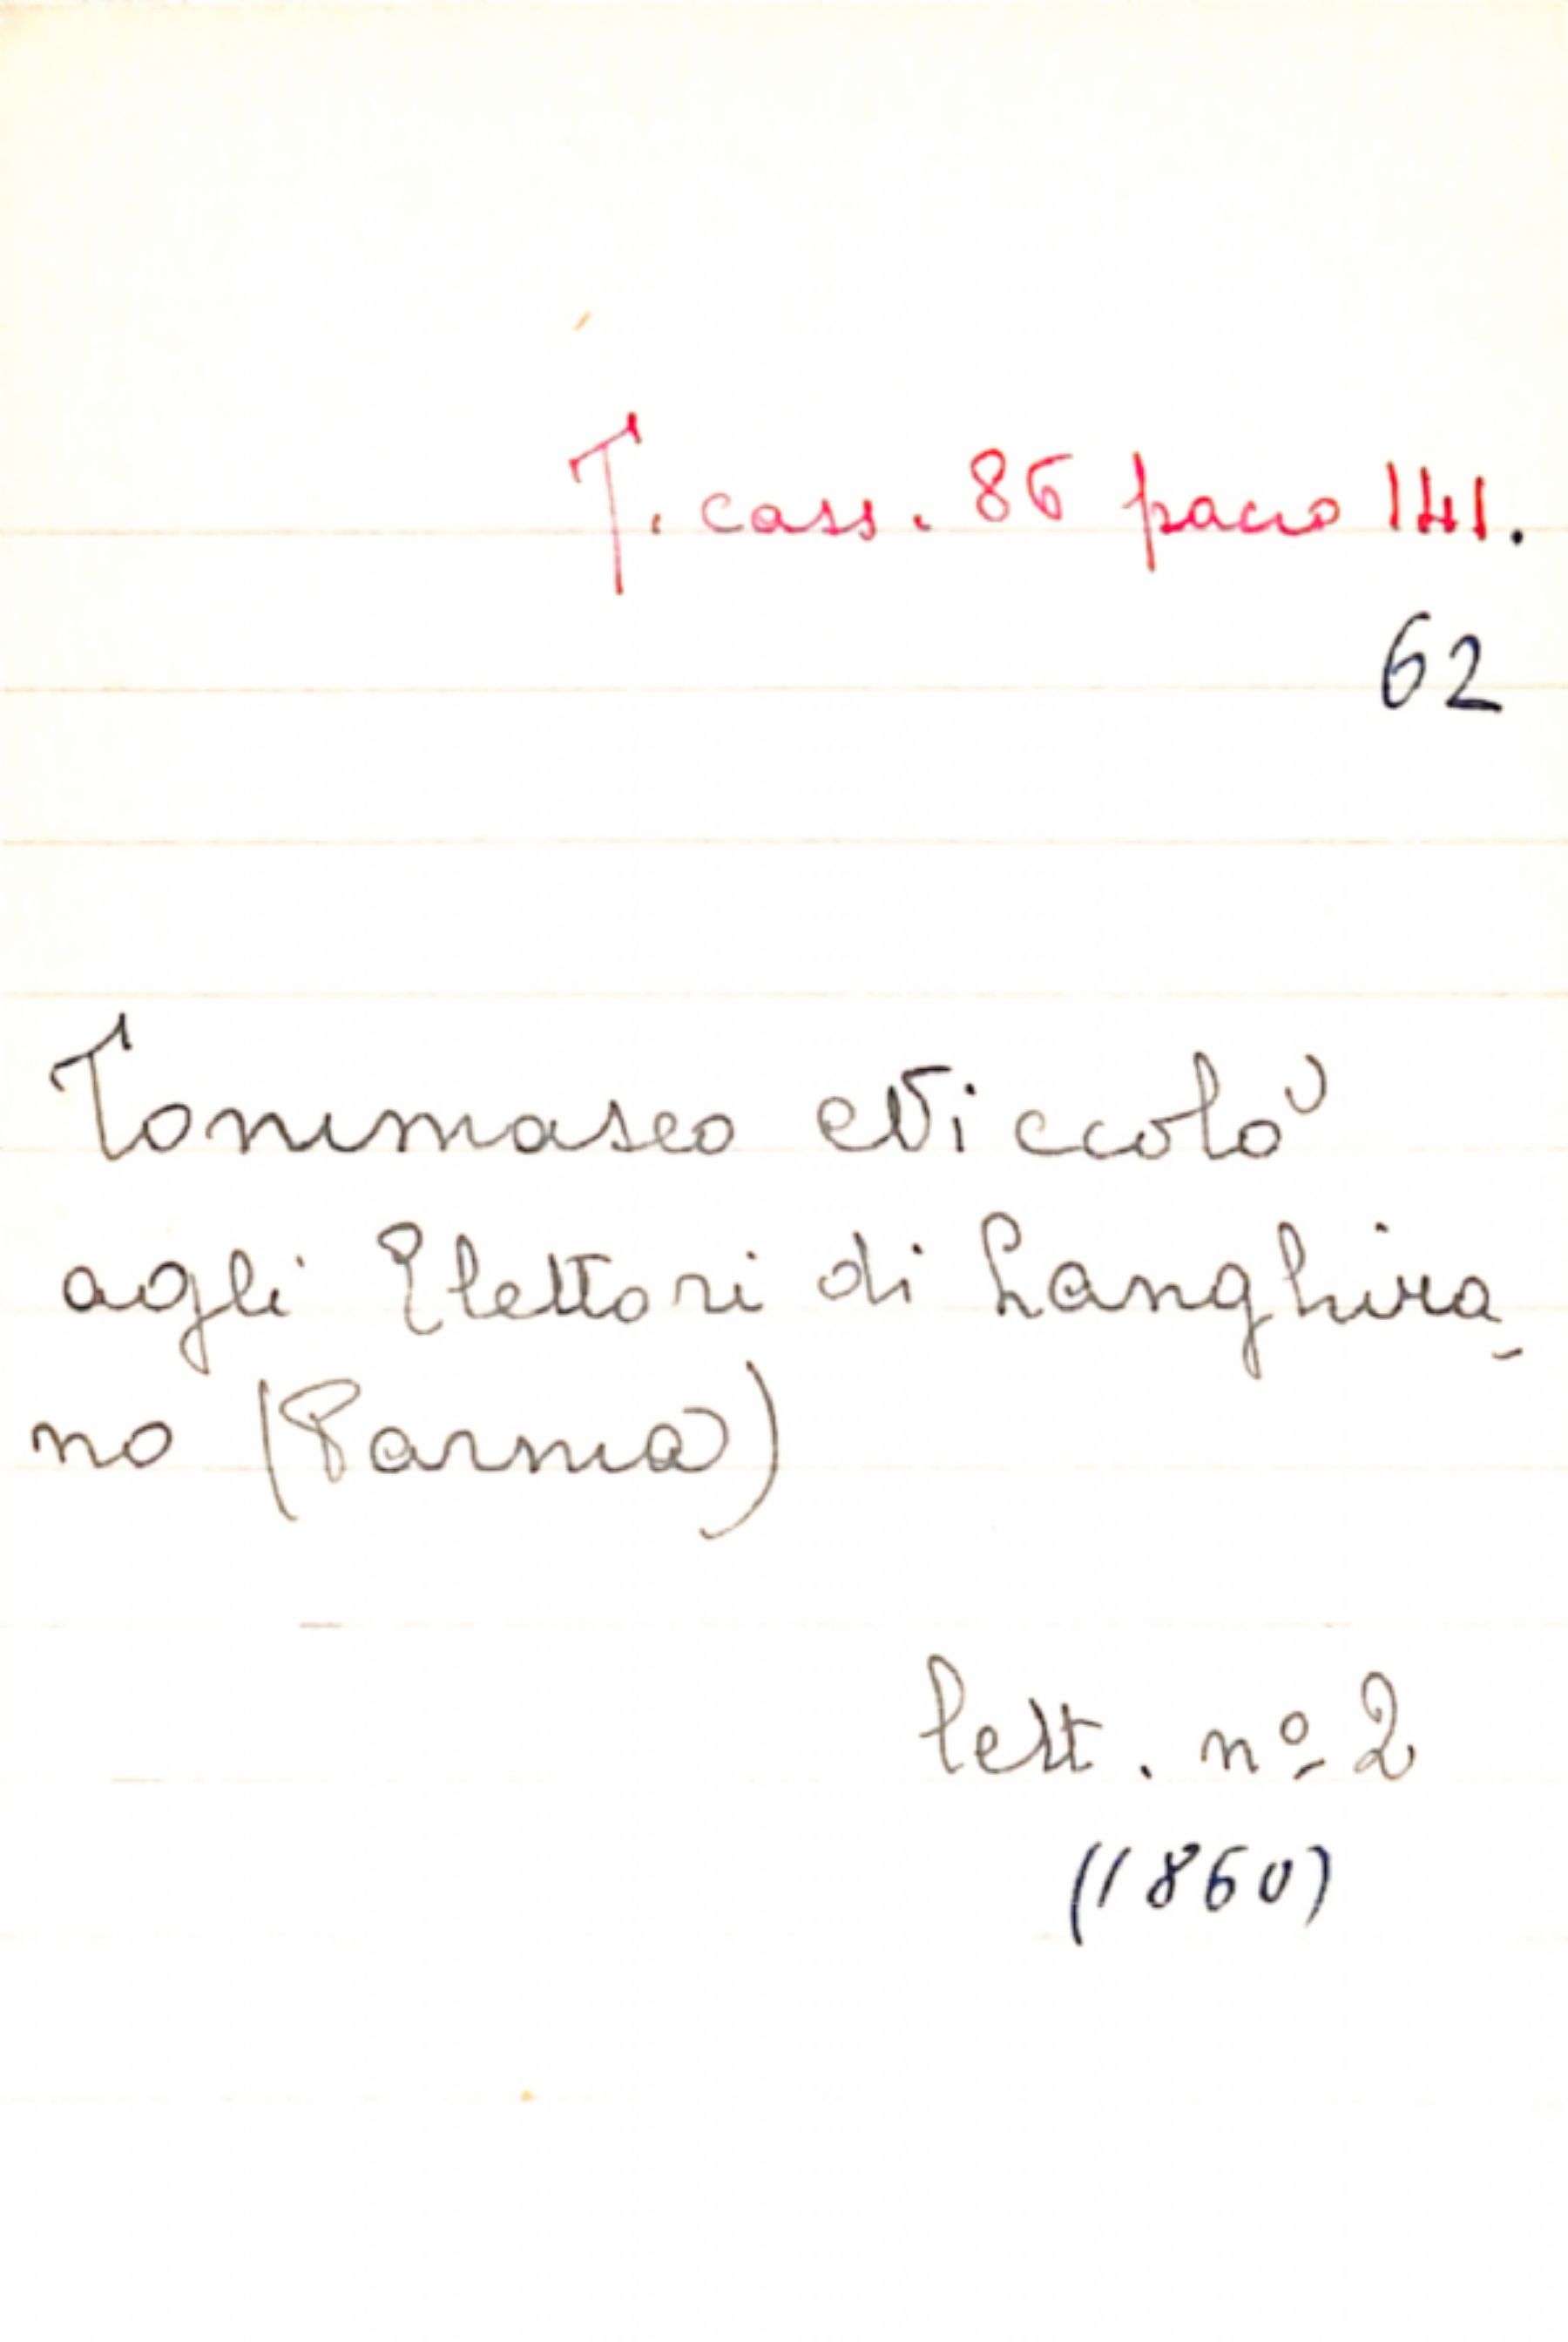 T. cass. 86 pacco 141.
62
Tommaseo Niccolò
agli Elettori di Langhira-
no (Parma)
lett. nº 2
(1860)